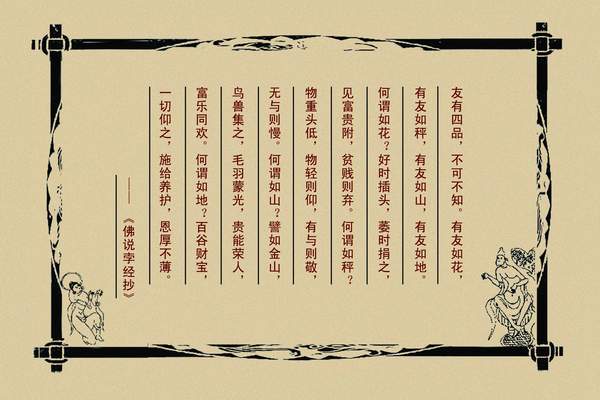 友有四品，不可不知。有友如花，
有友如秤，有友如山，有友如地。
何谓如花？好时插头，萎时捐之，
见富贵附，贫贱则弃。何谓如秤？
物重头低，物轻则仰，有与则敬，
无与则慢。何谓如山？譬如金山，
鸟兽集之，毛羽蒙光，贵能荣人，
富乐同欢。何谓如地？百谷财宝，
一切仰之，施给养护，恩厚不薄。
——《佛说孛经抄》